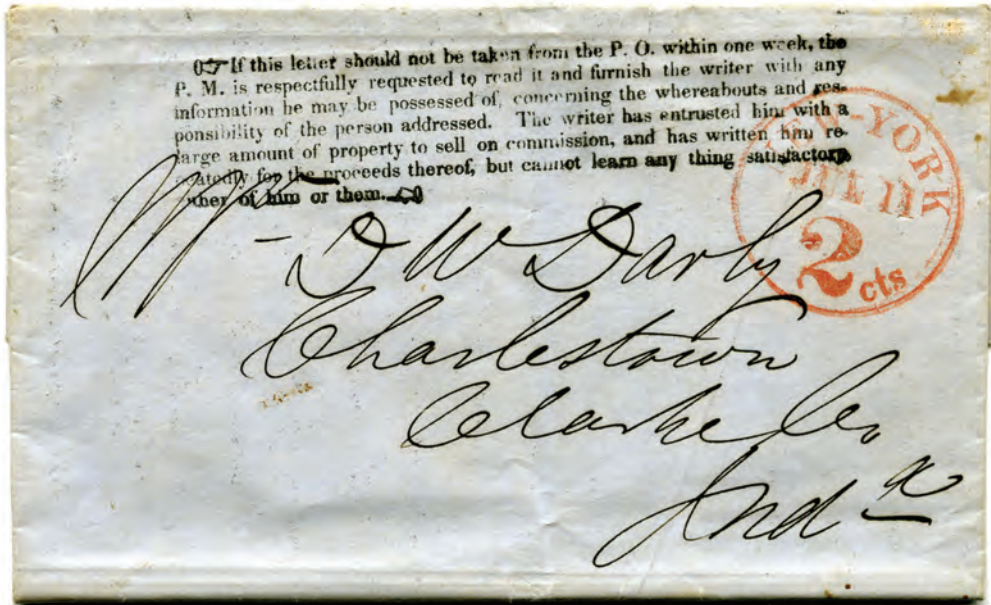 ☞If this letter should not be taken from the P. O. within one week, the
P. M. is respectfully requested to read it and furnish the writer with any
information he may be possessed of, concerning the whereabouts and res-
ponsibility of the person addressed. The writer has entrusted him with a
large amount of property to sell on commission, and has written him re-
peatedly for the proceeds thereof, but cannot learn any thing satisfactory
either of him or them.☜
NEW-YORK
JUL 11
2 cts
D W Darby
Charlestown
Clarke Co,
Ind a